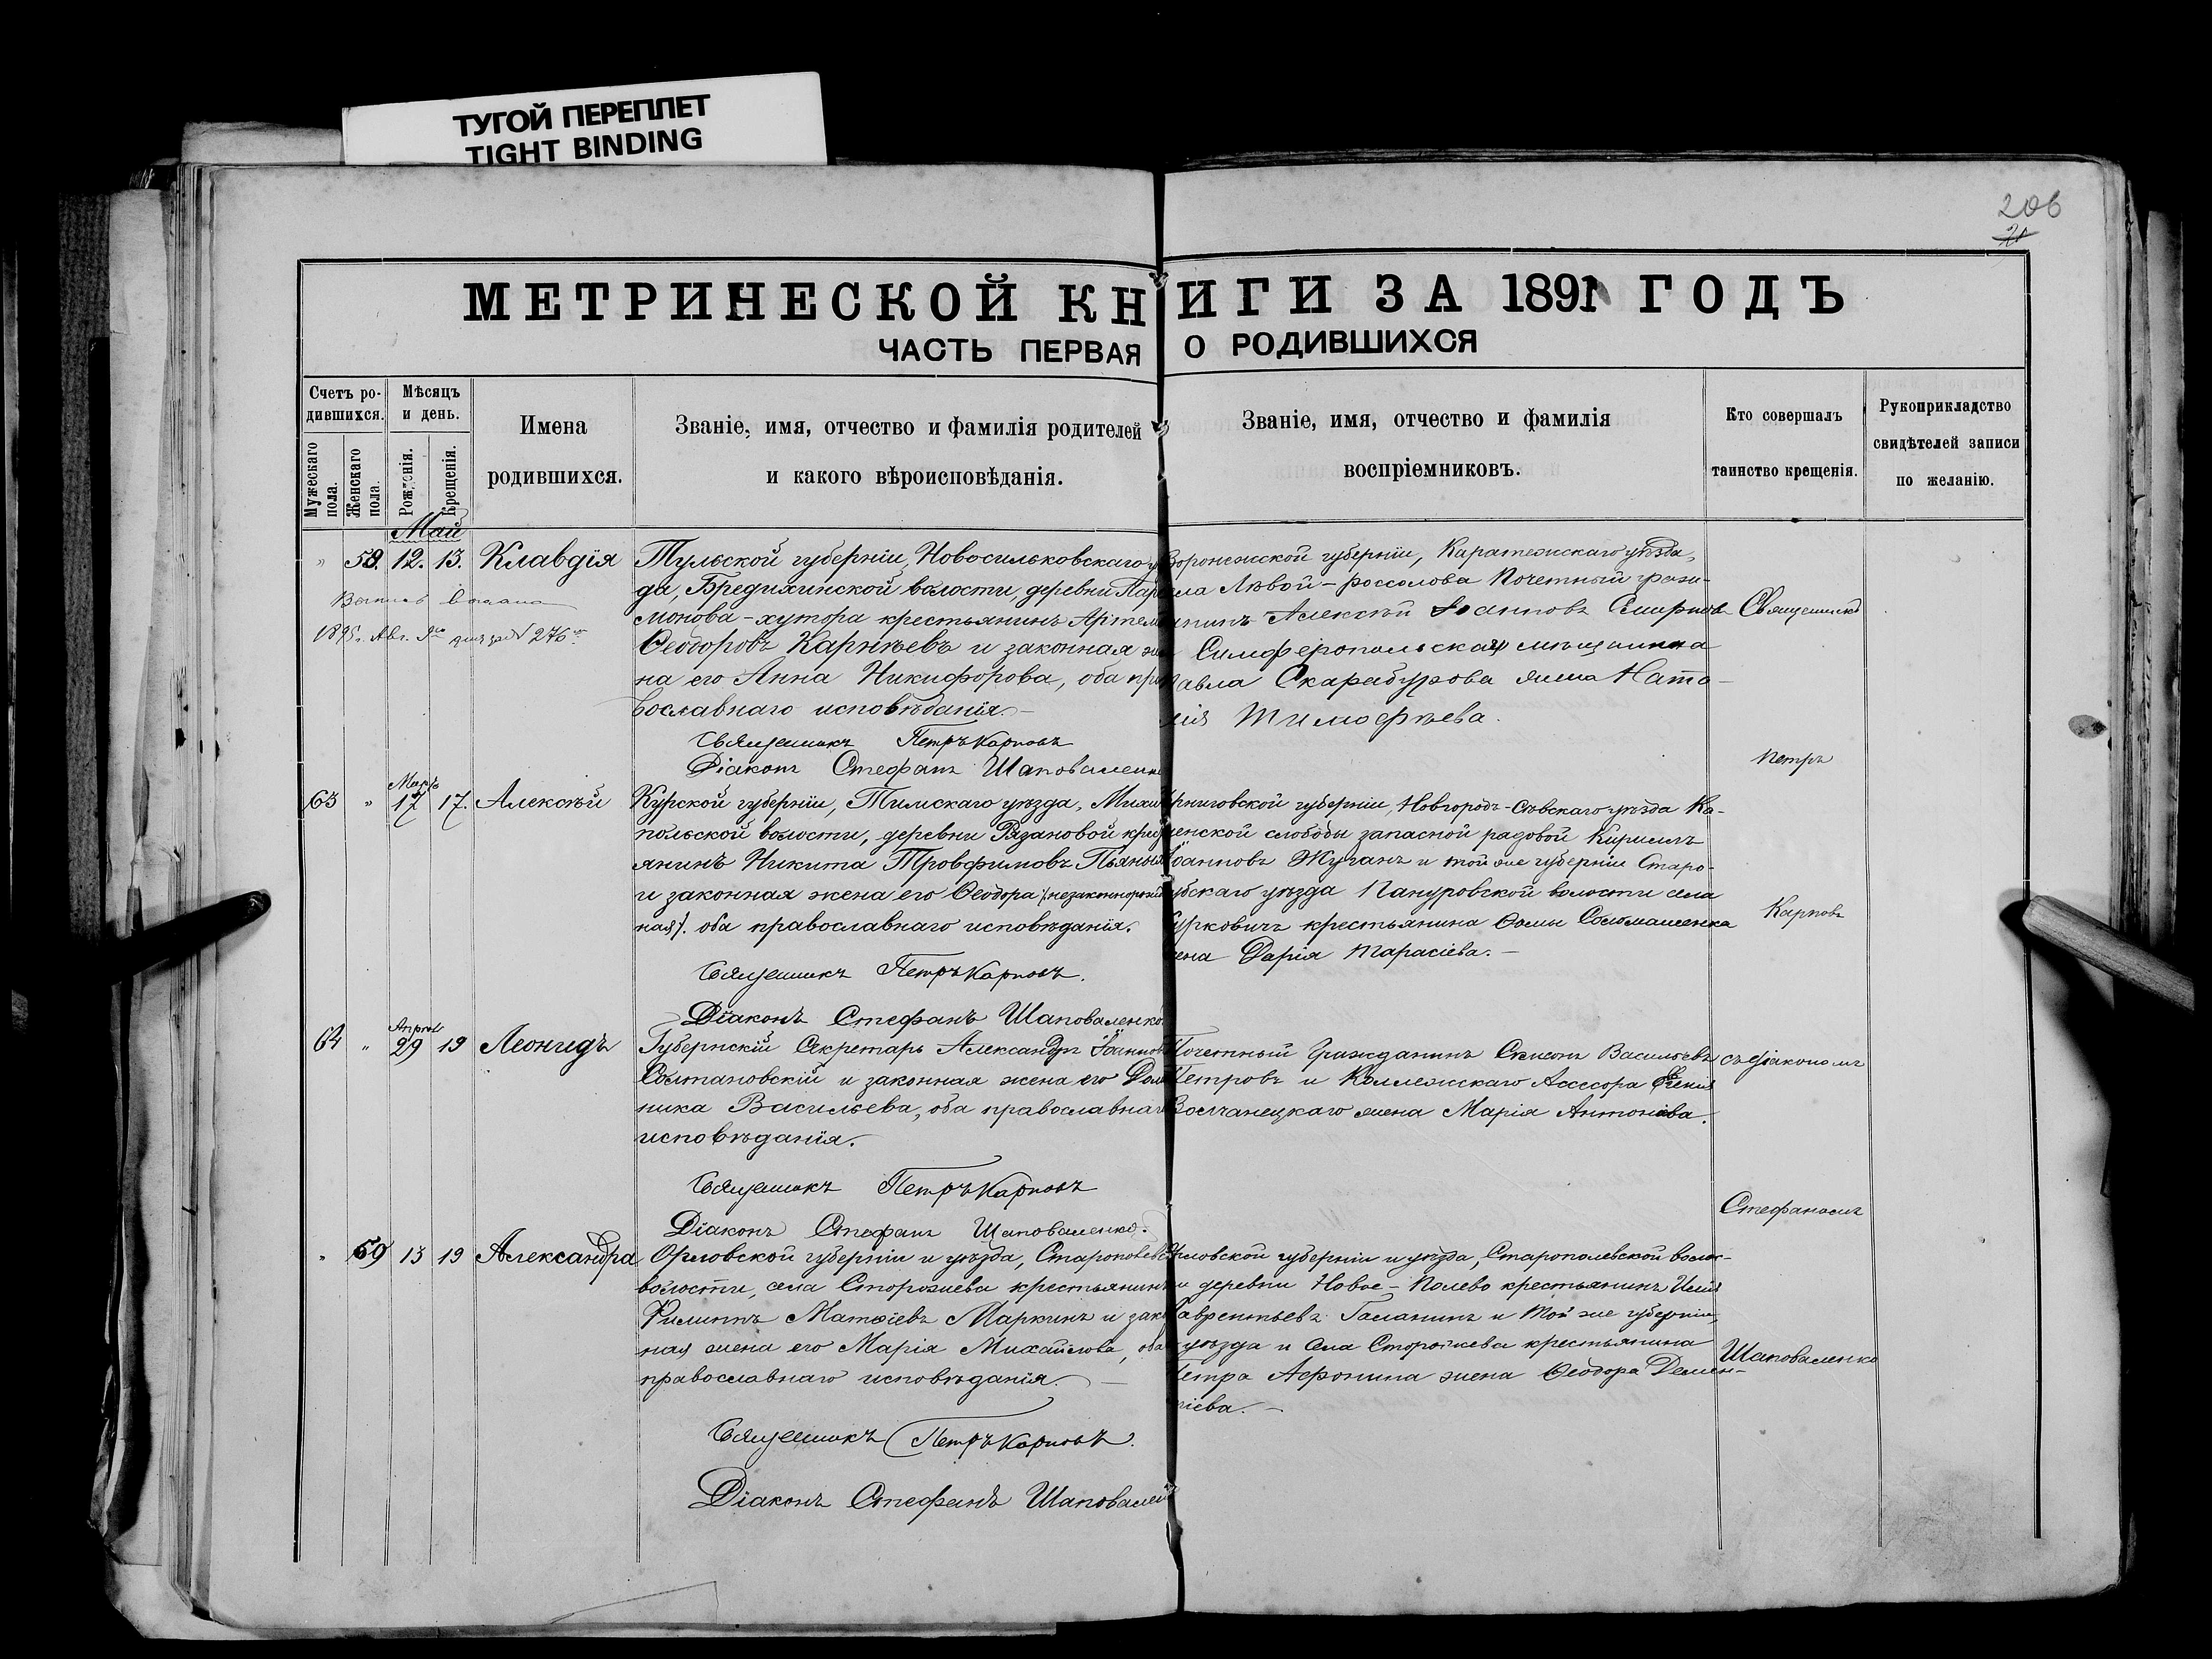 ТУГОЙ ПЕРЕПЛЕТ
TIGHT BINDING
206
21
МЕТРИЧЕСКОЙ КНИГИ ЗА 1891 ГОДЪ
ЧАСТЬ ПЕРВАЯ О РОДИВШИХСЯ
Счетъ ро-
дившихся.
Мужескаго пола.
Женскаго пола.
Мѣсяцъ
и день.
Рожденія.
Крещенія.
Имена
родившихся.
Званіе, имя, отчество и фамилія родителей
и какого вѣроисповѣданія.
Званіе, имя, отчество и фамилія
воспріемниковъ.
Кто совершалъ
таинство крещенія.
Рукоприкладство
свидѣтелей записи
по желанію.
Май
" 58. 12. 13. Клавдія
1895 г. Авг. 276
Тульской губерніи, Новосильковскаго у
да, Бредихинской волости, деревни Пар
монова-хутора крестьянинъ Артем
Ѳеодоровъ Карнѣевъ и законная же
на его Анна Никифорова, оба пра
вославнаго исповѣданія.
Священникъ Петръ Карповъ
Діаконъ Стефанъ Шаповаленко
Воронежской губерніи, уѣзда,
села Почетный граж-
данинъ Алексѣй Іоанновъ Смирновъ
Симферопольская мѣщанина
Павла Скарабурова жена Ната-
лія Тимофѣева.
Священникъ
Петръ
Карповъ
съ діакономъ
Стефаномъ
Шаповаленко
63 " Мартъ 17 17. Алексѣй
Курской губерніи, Тимскаго уѣзда, Михай
польской волости, деревни Рязановой крест
янинъ Никита Трофимовъ Пьяных
и законная жена его Ѳеодора (незаконнорожден
ная). оба православнаго исповѣданія.
Священникъ Петръ Карповъ.
Діаконъ Стефанъ Шаповаленко.
Черниговской губерніи, Новгородъ-Сѣвскаго уѣзда Ка-
менской слободы запасной рядовой Кириллъ
Іоанновъ Жуганъ и той же губерніи Старо-
дубскаго уѣзда Пануровской волости села
Курковичъ крестьянина Ѳомы Соломащенка
жена Дарія Тарасіева.
64 " Апрѣль 29 19 Леонидъ
Губернскій Секретарь Александръ Іоанновъ
Солтановскій и законная жена его Дом
ника Васильева, оба православнаго
исповѣданія.
Священникъ Петръ Карповъ
Діаконъ Стефанъ Шаповаленко.
Почетный Гражданинъ Симеонъ Васильевъ
Петровъ и Коллежскаго Ассесора Евгенія
Волчанецкаго жена Марія Антоніева.
" 59 13 19 Александра
Орловской губерніи и уѣзда, Старополевской
волости, села Сторожева крестьянинъ
Филиппъ Матѳіевъ Маркинъ и закон
ная жена его Марія Михайлова, оба
православнаго исповѣданія.
Священникъ Петръ Карповъ.
Діаконъ Стефанъ Шаповален
Орловской губерніи и уѣзда, Старополевской волос-
ти деревни Новое-Полево крестьянинъ Илія
Лаврентьевъ Галанинъ и той же губерніи,
уѣзда и села Сторожева крестьянина
Петра Афонина жена Ѳеодора Демен-
тіева.